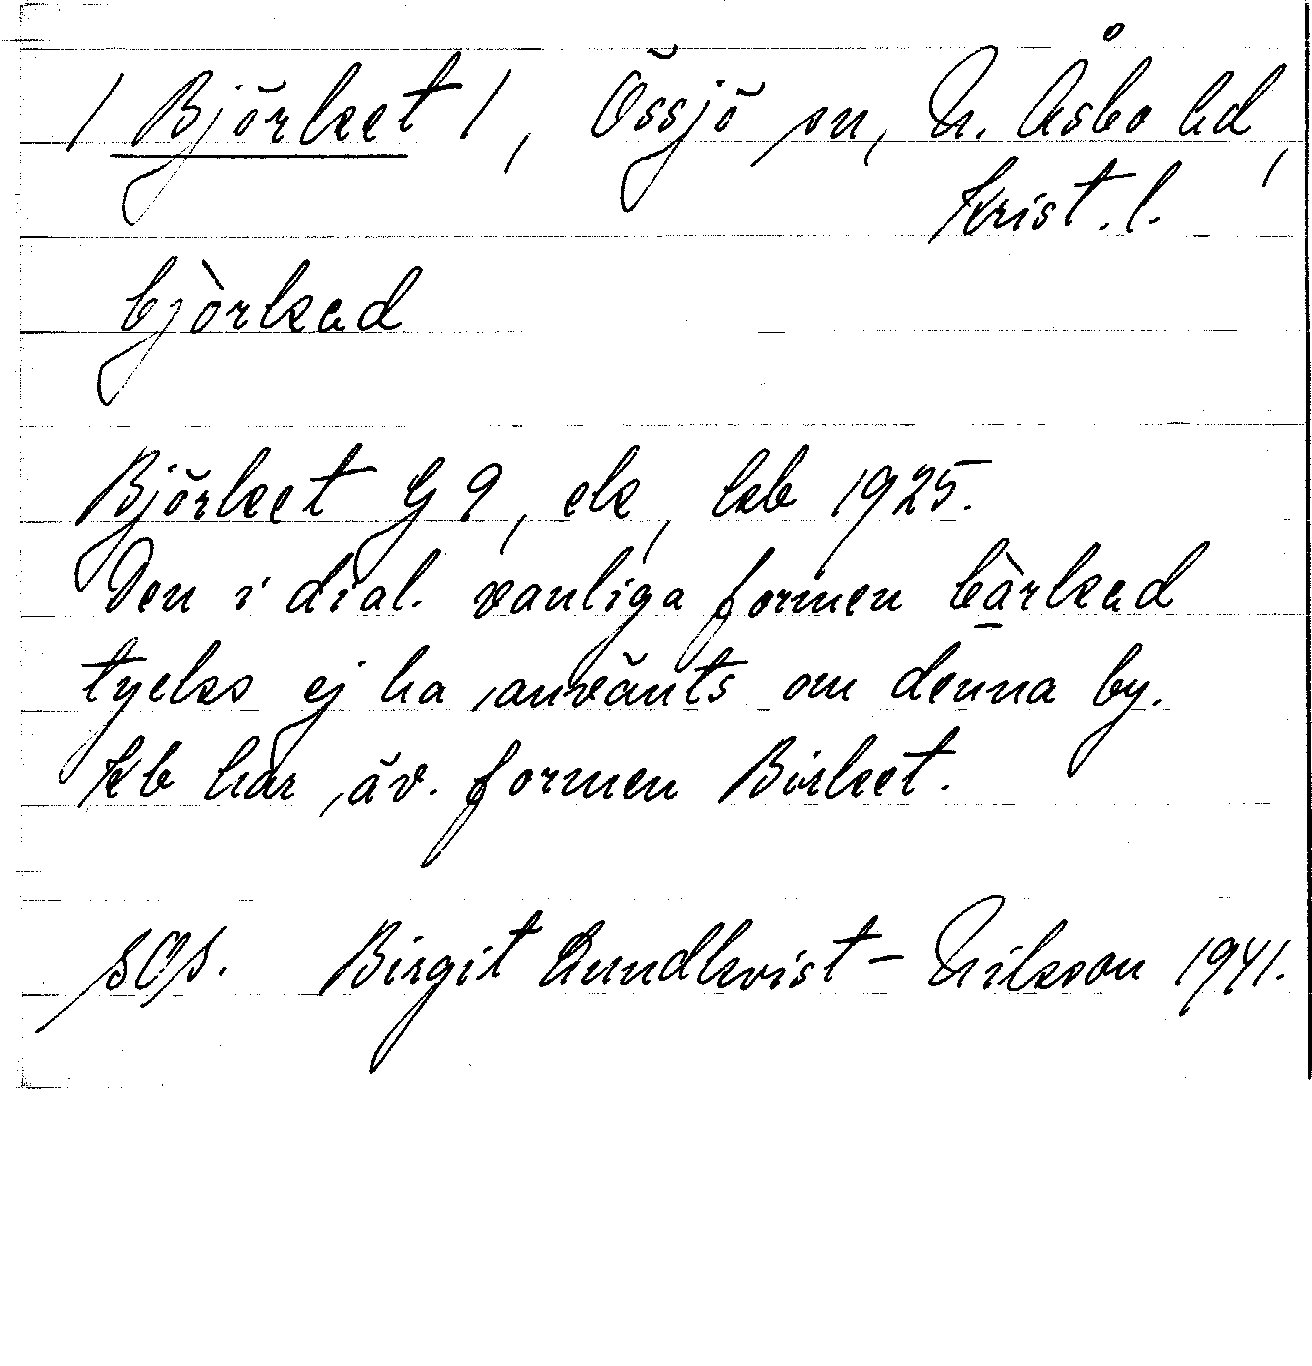 / Björket /, Össjö sn, N. Åsbo hd,
Krist. l.
bjòrkad
Björket G 9, ek, kb 1925.
Den i dial. vanliga formen bàrkad
tycks ej ha använts om denna by.
Kb har äv. formen Birket.
SOS. Birgit Rundkvist - Nilsson 1941.